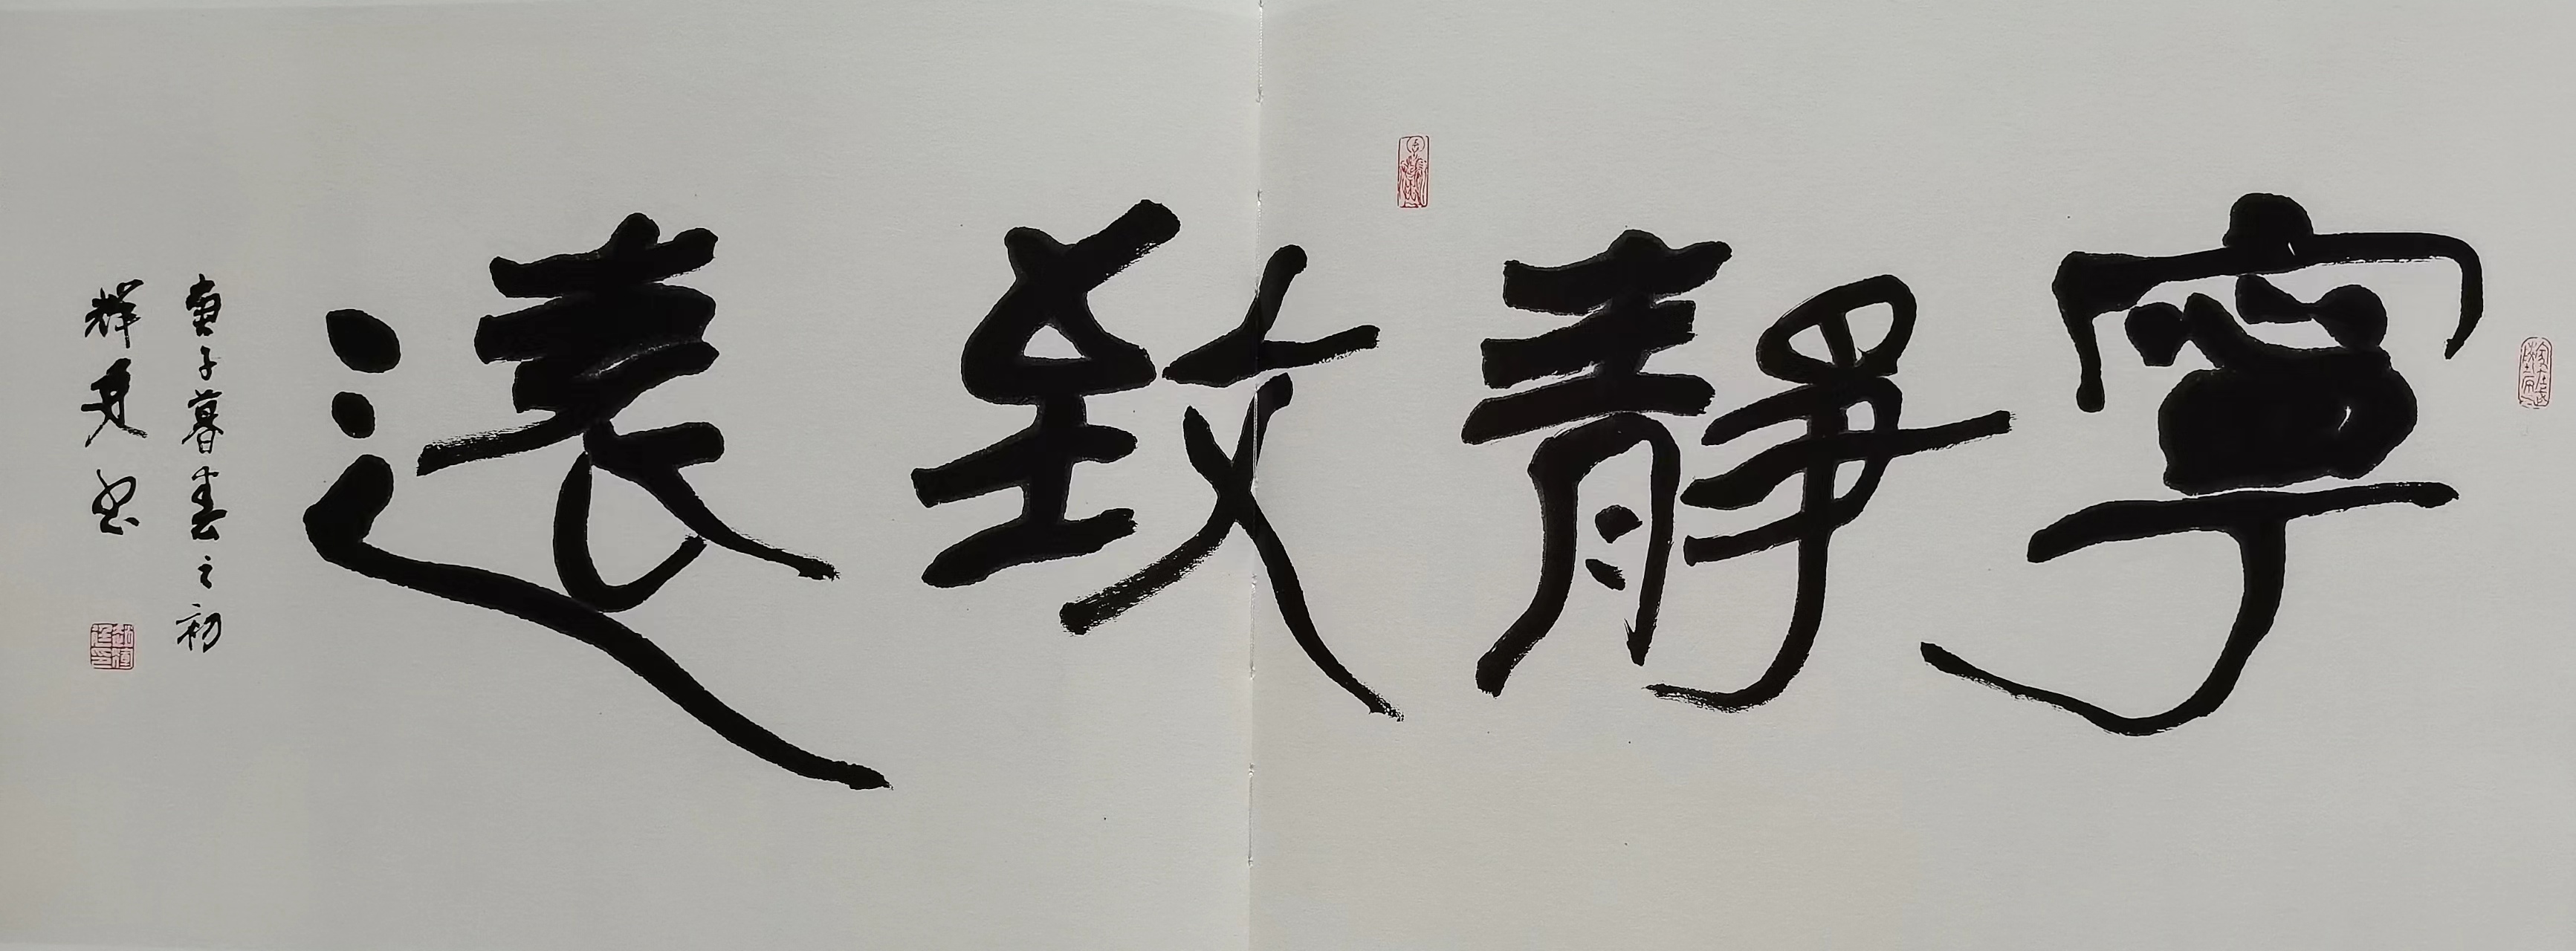 寧靜致遠
庚子暮春之初
輝
書